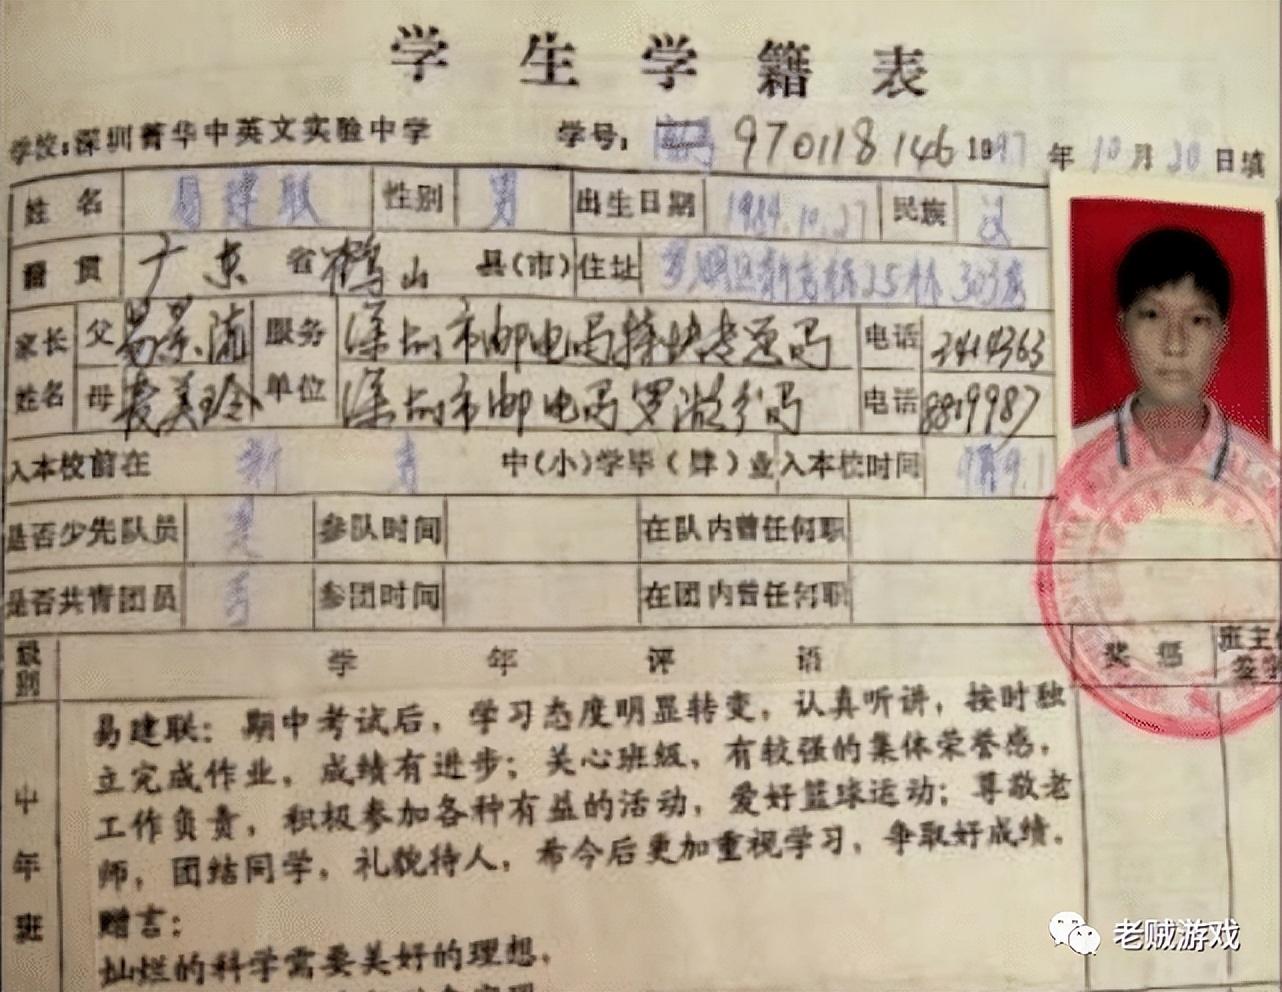 学生学籍表
学校：深圳菁华中英文实验中学 学号： 970118146 1997年10月20日填
姓名 易建联 性别 男 出生日期 1984.10.27 民族 汉
籍贯 广东省鹤山县(市) 住址 罗湖区新秀村25栋303房
家长姓名 父 易景流 服务单位 深圳市邮电局特快专递局 电话 2414363
母 麦美玲 深圳市邮电局罗湖分局 电话 8819987
入本校前在 新秀 中(小)学毕(肄)业 入本校时间
是否少先队员 是 参队时间 在队内曾任何职
是否共青团员 否 参团时间 在团内曾任何职
级别 学年评语 奖惩 班主
签字
中年班
易建联：期中考试后，学习态度明显转变，认真听讲，按时独
立完成作业，成绩有进步；关心班级，有较强的集体荣誉感，
工作负责，积极参加各种有益的活动，爱好篮球运动；尊敬老
师，团结同学，礼貌待人，希今后更加重视学习，争取好成绩。
赠言：
灿烂的科学需要美好的理想，
老贼游戏